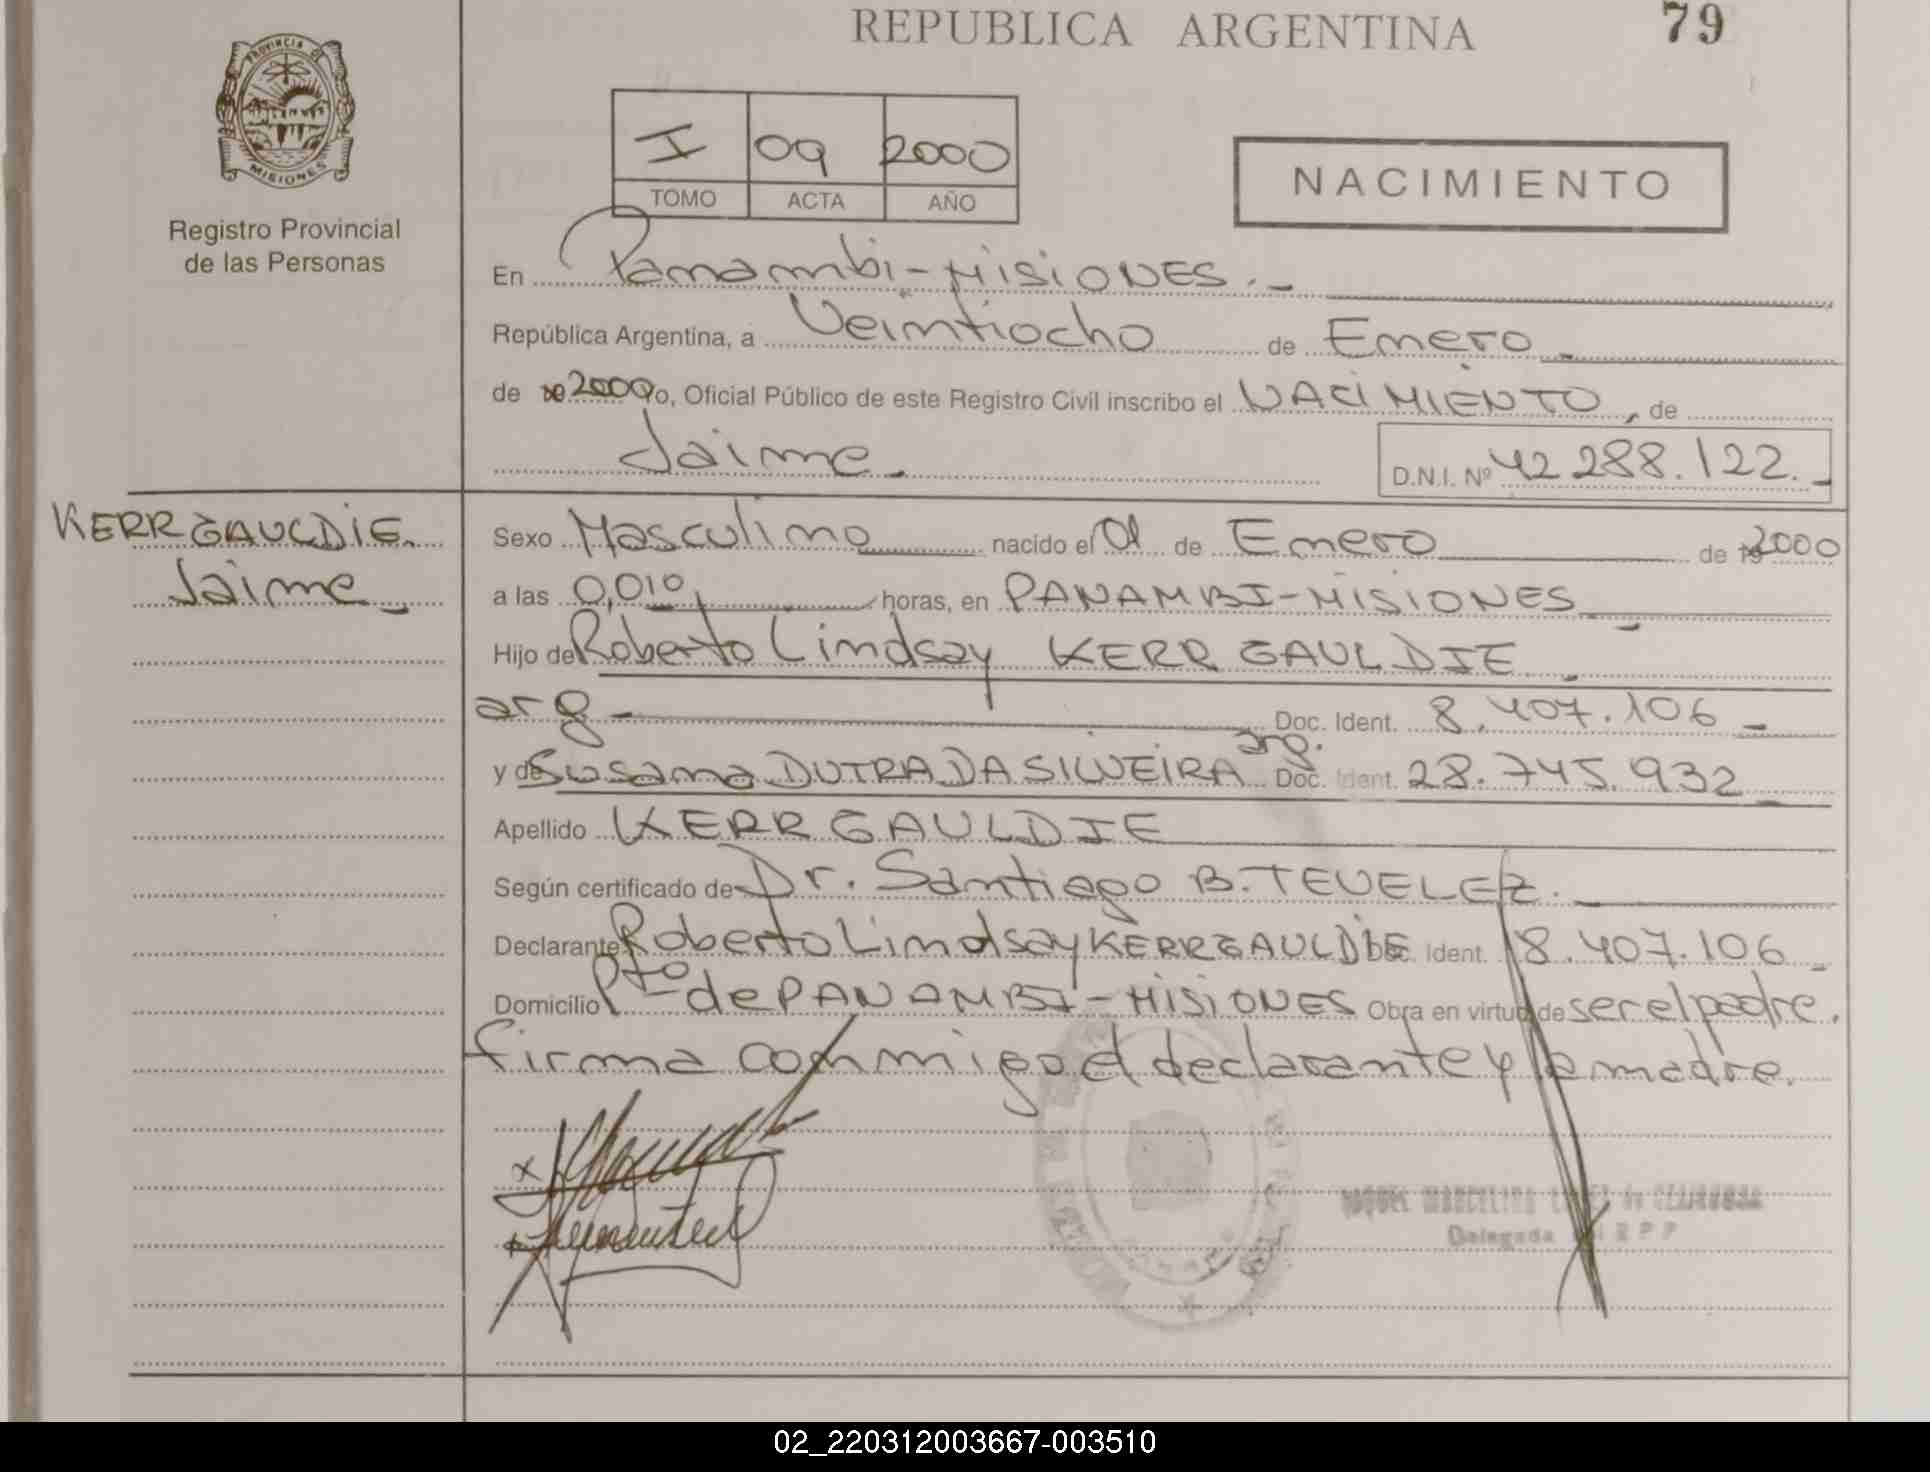 REPUBLICA ARGENTINA
79
PROVINCIA DE
MISIONES
Registro Provincial
de las Personas
I 09 2000
TOMO ACTA AÑO
NACIMIENTO
En Panambi-MISIONES.-
República Argentina, a Veintiocho de Enero
de 2000 yo, Oficial Público de este Registro Civil inscribo el NACIMIENTO, de
Jaime.
D.N.I. Nº 42 288.122.-
KERR GAULDIE.
Jaime
Sexo Masculino nacido el 01 de Enero de 19 2000
a las 0,010 horas, en PANAMBI-MISIONES
Hijo de Roberto Lindsay KERR GAULDIE
arg Doc. Ident. 8.407.106
y de Susana DUTRA DA SILVEIRA arg. Doc. Ident. 28.745.932
Apellido KERR GAULDIE
Según certificado de Dr. Santiago B. TEVELEZ.
Declarante Roberto Lindsay KERR GAULDIE Doc. Ident. 8.407.106
Domicilio Pto de PANAMBI-MISIONES Obra en virtud de ser el padre.
firma conmigo el declarante y la madre.
Delegada
02_220312003667-003510